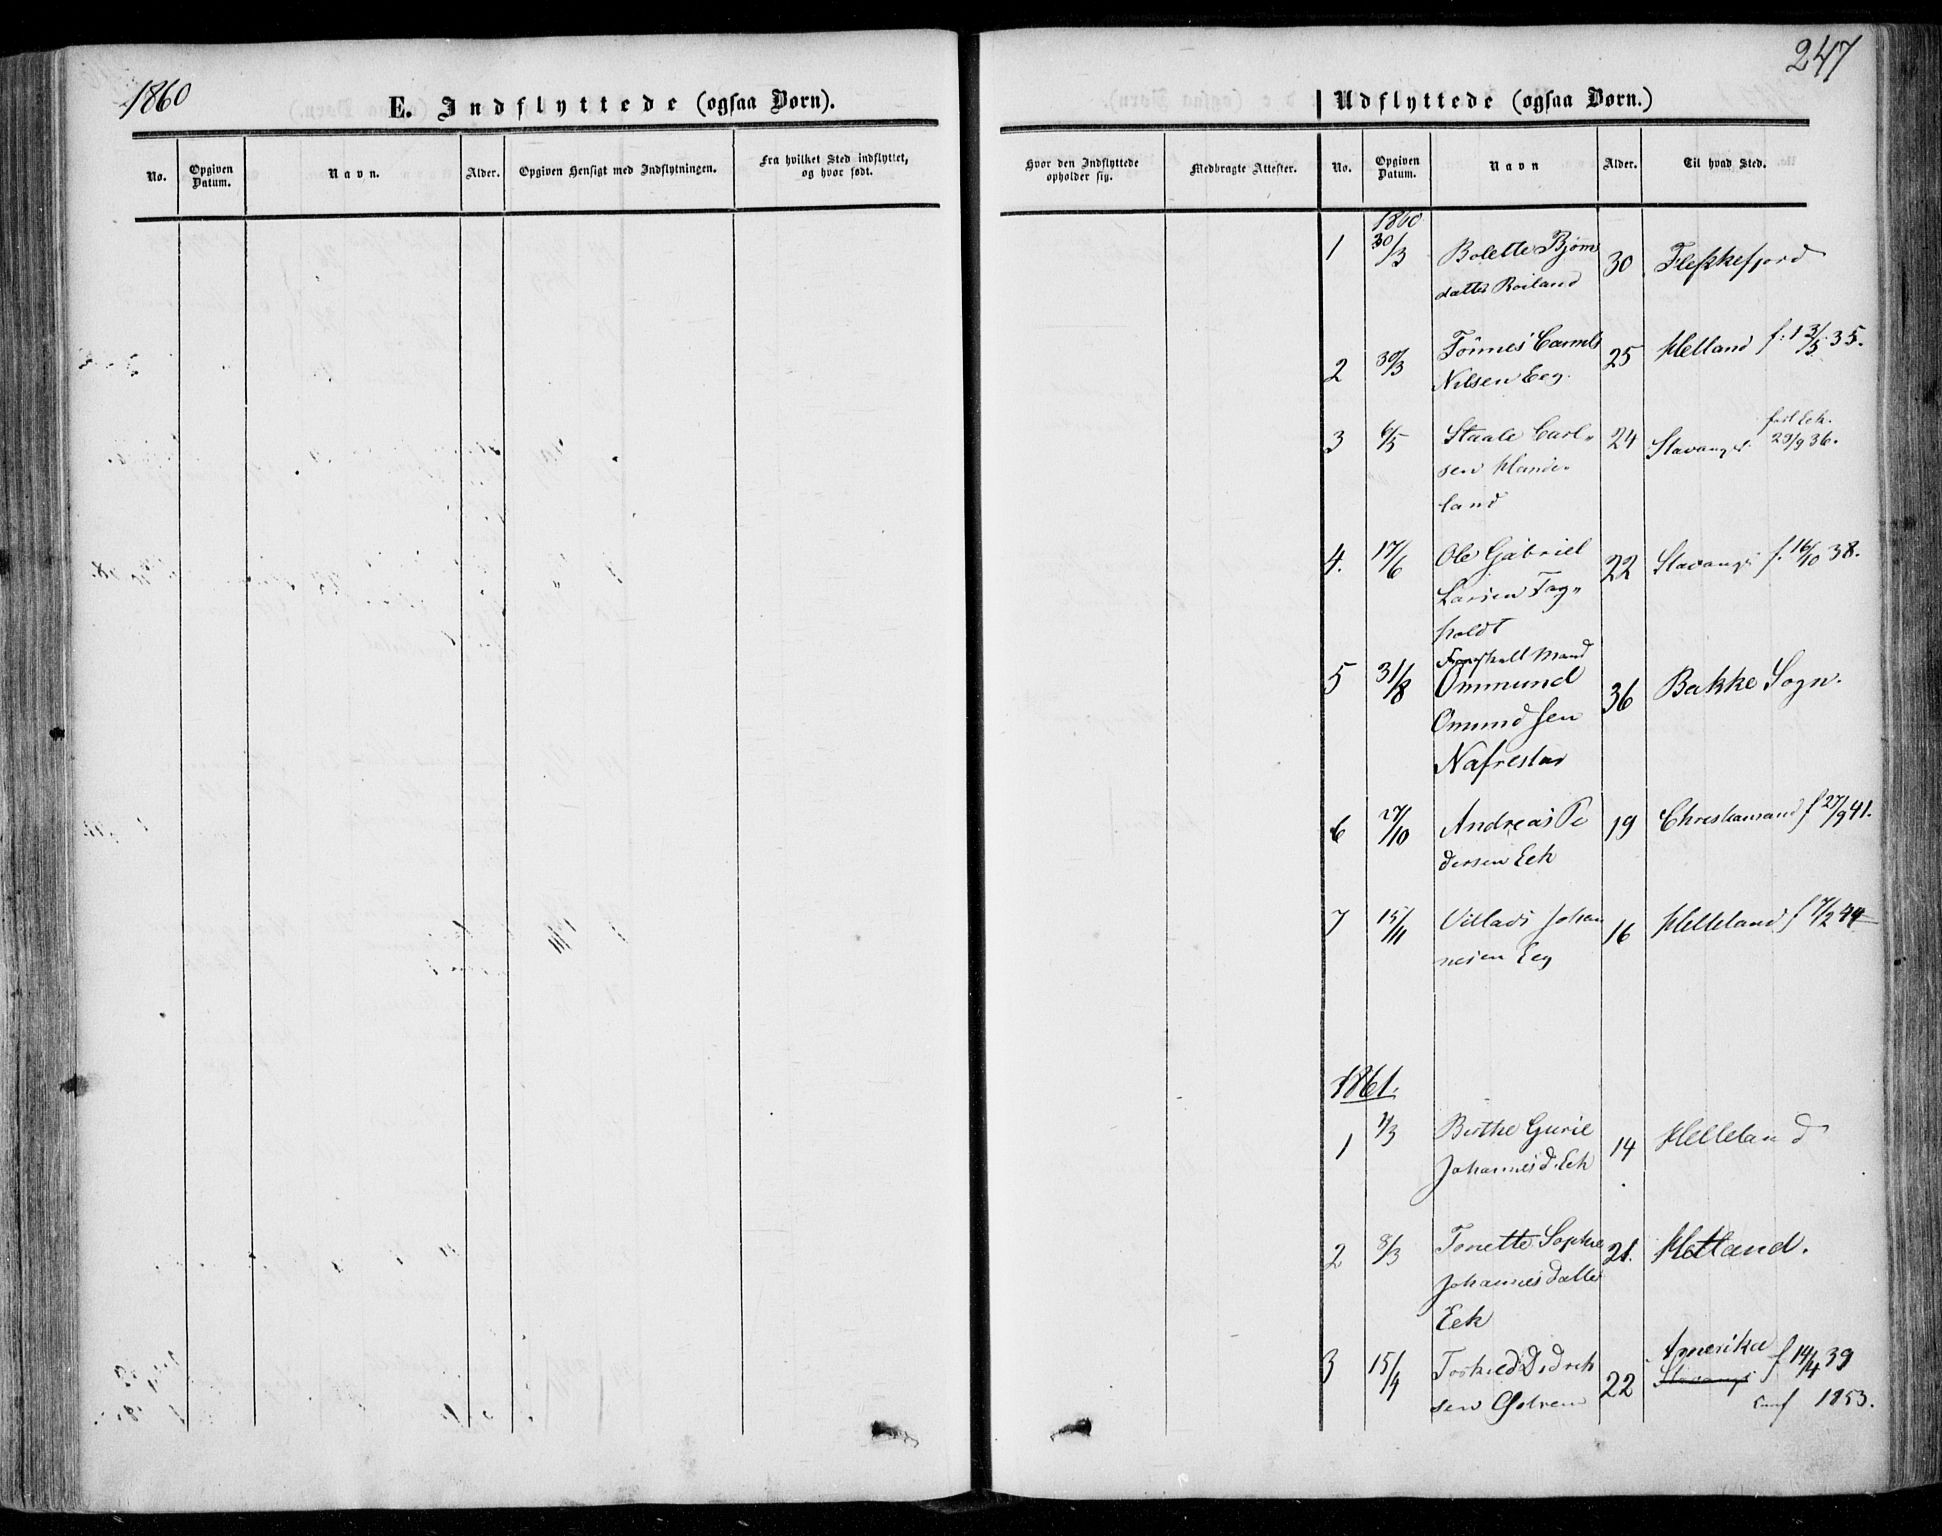 1860
247
E. Indflyttede (ogsaa Børn).
No. Opgiven Datum. Navn. Alder. Opgiven Hensigt med Indflytningen. Fra hvilket Sted indflyttet, og hvor født.
Hvor den Indflyttede opholder sig. Medbragte Attester.
Udflyttede (ogsaa Børn.)
No. Opgiven Datum. Navn Alder. Til hvad Sted.
1860
1 30/3 Bolette Bjørns 30 Flekkefjord
datter Roiland
2 30/3 Tönnes 25 Hetland f. 35.
Nilsen Eeg.
3 6/5 Staale Carl„ 24 Stavanger 36.
sen Hande
land
4. 17/6 Ole Gabriel 22 Stavanger f. 16/10 38.
Larsen Fog„
holdt
Mand
5 31/8 Ommund 36 Bakke Sogn.
Omundsen
Nafrestad
6 27/10 Andreas Pe 19 Christiansand f 27/9 41.
dersen Eek
7 15/11 Villads Johan 16 Helleland f 7/2 44
nesen Eeg
1861.
1 1/3 Berthe Gurie 14 Helleland
Johannesd. Eek
2 8/3 Tonette Sophie 21. Hetland.
Johannesdatter
Eek
3 15/4 Torkild Didrik 22 Amerika f 14/4 39
sen Stavanger
Conf 1853.